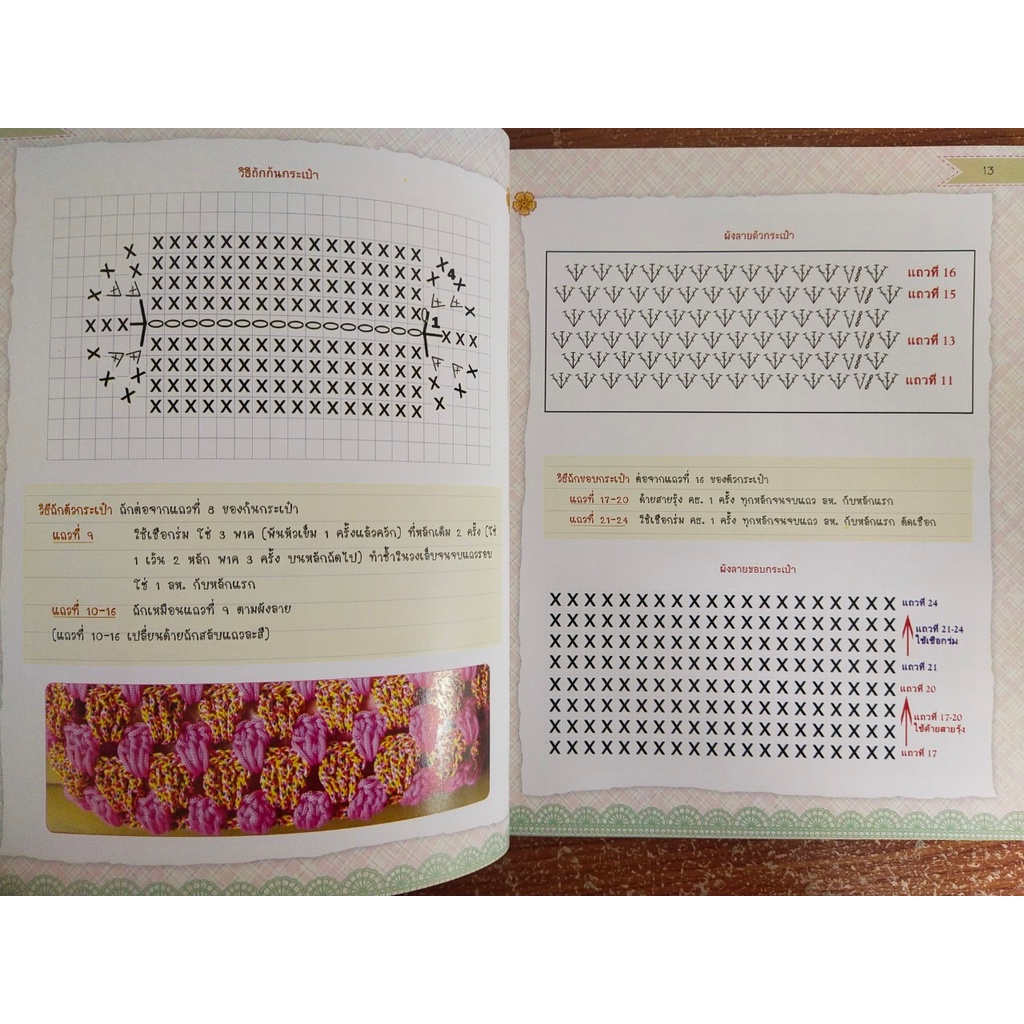 วิธีถักก้นกระเป๋า
4
1
วิธีถักตัวกระเป๋า ถักต่อจากแถวที่ 8 ของก้นกระเป๋า
แถวที่ 9 ใช้เชือกร่ม โซ่ 3 พาค (พันหัวเข็ม 1 ครั้งแล้วควัก) ที่หลักเดิม 2 ครั้ง (โซ่
1 เว้น 2 หลัก พาค 3 ครั้ง บนหลักถัดไป) ทำซ้ำในวงเล็บจนจบแถวรอบ
โซ่ 1 ลห. กับหลักแรก
แถวที่ 10-16 ถักเหมือนแถวที่ 9 ตามผังลาย
(แถวที่ 10-16 เปลี่ยนด้ายถักสลับแถวละสี)
13
ผังลายตัวกระเป๋า
แถวที่ 16
แถวที่ 15
แถวที่ 13
แถวที่ 11
วิธีถักขอบกระเป๋า ต่อจากแถวที่ 16 ของตัวกระเป๋า
แถวที่ 17-20 ด้ายสายรุ้ง คธ. 1 ครั้ง ทุกหลักจนจบแถว ลห. กับหลักแรก
แถวที่ 21-24 ใช้เชือกร่ม คธ. 1 ครั้ง ทุกหลักจนจบแถว ลห. กับหลักแรก ตัดเชือก
ผังลายขอบกระเป๋า
แถวที่ 24
แถวที่ 21-24
ใช้เชือกร่ม
แถวที่ 21
แถวที่ 20
แถวที่ 17-20
ใช้ด้ายสายรุ้ง
แถวที่ 17